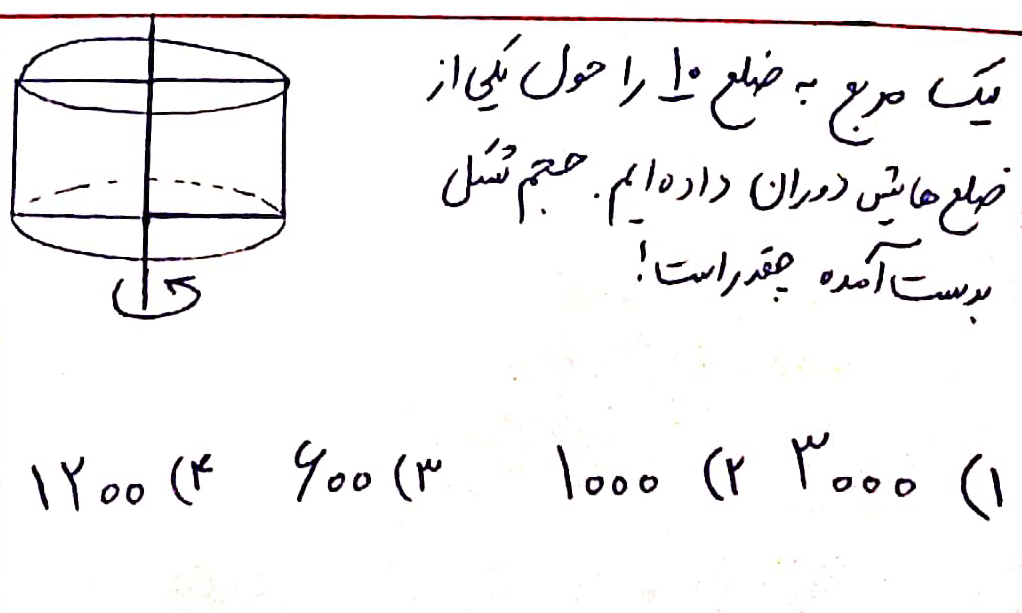 یک مربع به ضلع ۱۰ را حول یکی از
ضلع هایش دوران داده ایم. حجم شکل
بدست آمده چقدر است!
۱) ۳۰۰۰ ۲) ۱۰۰۰ ۳) ۶۰۰ ۴) ۱۲۰۰